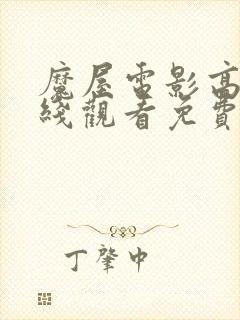 魔屋雷影高
綫觀看免費
丁肇中